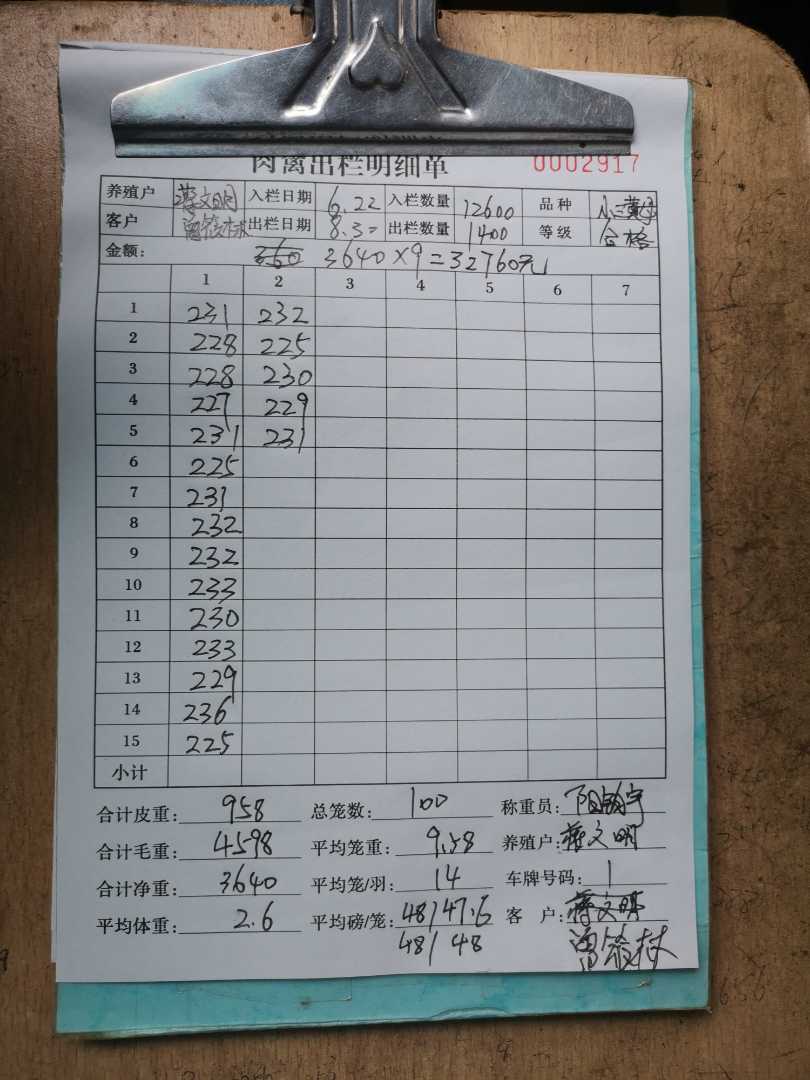 肉禽出栏明细单 0002917
养殖户 蒋文明 入栏日期 6.22 入栏数量 12600 品种
客户 出栏日期 8.30 出栏数量 1400 等级 合格
金额: 360 3640×9=32760元
1 2 3 4 5 6 7
1 231 232
2 228 225
3 228 230
4 227 229
5 231 231
6 225
7 231
8 232
9 232
10 233
11 230
12 233
13 229
14 236
15 225
小计
合计皮重: 958 总笼数: 100 称重员:
合计毛重: 4598 平均笼重: 9.58 养殖户: 蒋文明
合计净重: 3640 平均笼/羽: 14 车牌号码: 1
平均体重: 2.6 平均磅/笼: 48/47.6 客 户: 蒋文明
48/48